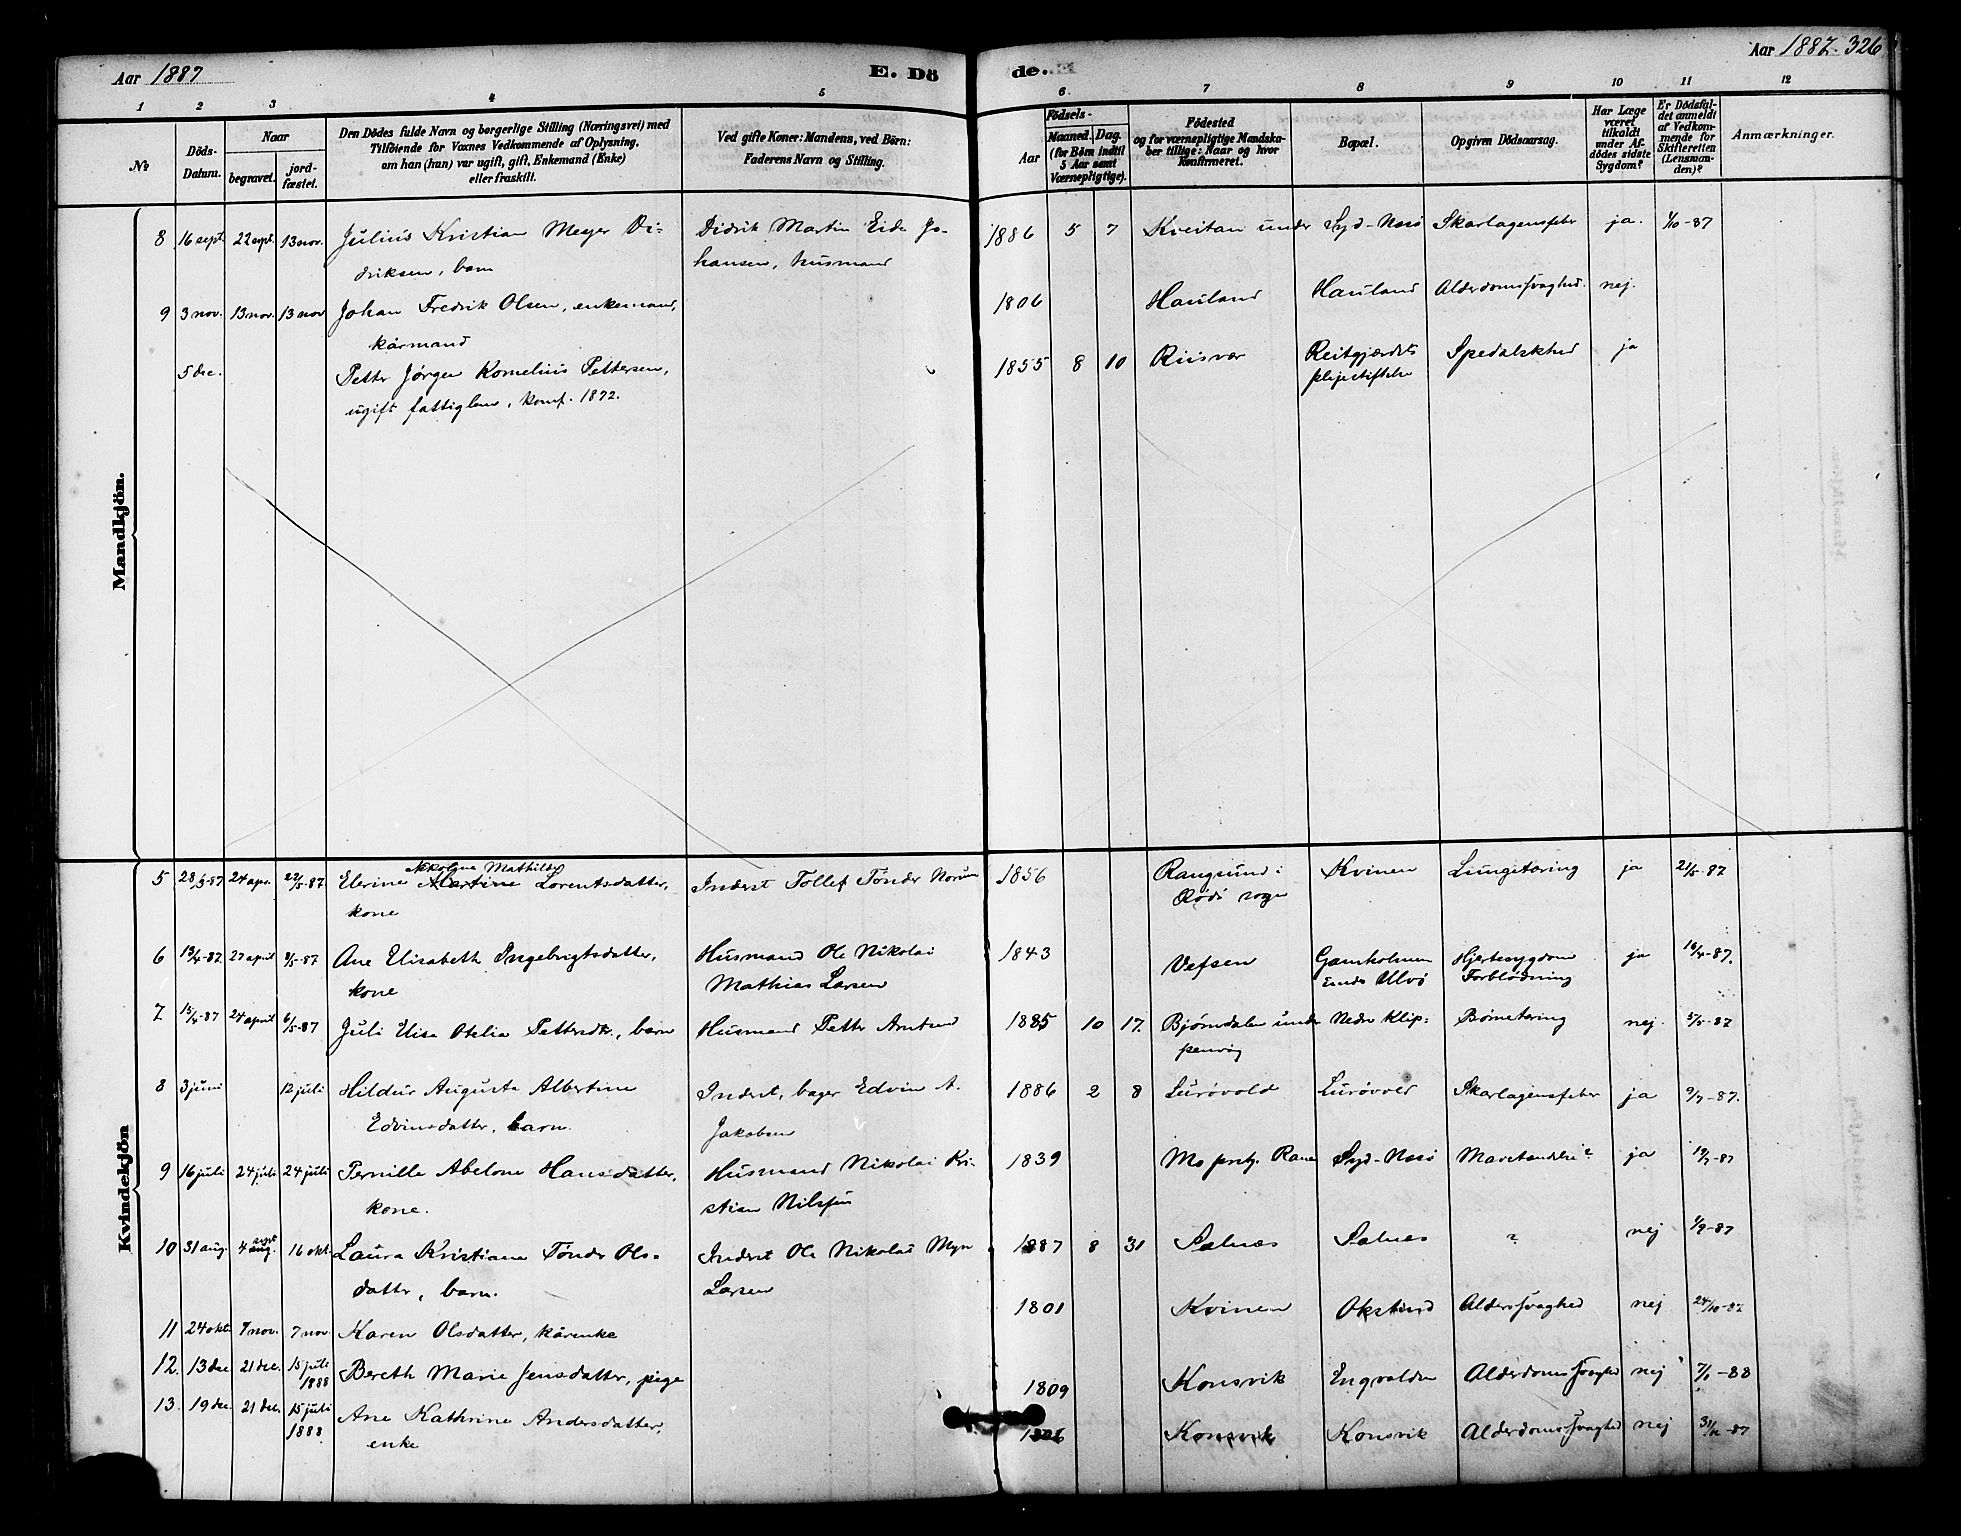 Aar 1887 E. Dö de. Aar 1887. 326
1 2 3 4 5 6 7 8 9 10 11 12
No
Döds-Datum.
Naar
begravet.
jord-fæstet.
Den Dödes fulde Navn og borgerlige Stilling (Næringsvei) med
Tilföiende for Voxnes Vedkommende af Oplysning,
om han (hun) var ugift, gift, Enkemand (Enke)
eller fraskilt.
Ved gifte Koner: Mandens, ved Börn:
Faderens Navn og Stilling.
Födsels-
Aar
Maaned. Dag.
(for Börn indtil
5 Aar samt
Værnepligtige).
Födested
og for værnepligtige Mandska-
ber tillige: Naar og hvor
konfirmeret.
Bopæl.
Opgiven Dödsaarsag.
Har Læge
været
tilkaldt
under Af-
dödes sidste
Sygdom?
Er Dödsfal-
det anmeldt
af Vedkom-
mende for
Skifteretten
(Lensman-
den)?
Anmærkninger.
Mandkjön.
8 16 sept. 22 sept. 13 nov. Julius Kristian Meyer Di- Didrik Martin Eide Jo- 1886 5 7 Kveitan under Syd-Nesö Skarlagensfeber ja. 1/10-87
driksen, barn hansen, husmand
9 3 nov. 13 nov. 13 nov Johan Fredrik Olsen, enkemand, 1806 Hauland Hauland Alderdomssvaghed. nej.
kårmand
5 dec. Petter Jørgen Kornelius Pettersen, 1855 8 10 Riisvær Reitgjærdets Spedalskhed ja
plejestiftelse
ugift fattiglem, konf. 1872.
Kvindekjön
Nikoline Mathilde
5 28/3-87 24 apr. 22/5-87 Elerine Martine Lorentsdatter, Inderst Tollef Tønder Norum 1856 Rangsund i Kvinen Lungetæring ja 21/5-87
kone Rødö sogn
6 13/4-87 27 april 9/5-87 Ane Elisabeth Ingebrigtsdatter, Husmand Ole Nikolai 1843 Vefsen Gamholmen Hjertesygdom ja 18/4-87.
kone Mathias Larsen under Ulvö Forblødning
7 15/4-87 24 april 6/5-87 Juli Elisa Otelia Pettersdtr., barn Husmand Petter Arntsen 1885 10 17. Bjørndalen under Nedre Klip- Børnetæring nej. 5/5-87
penvåg
8 3 juni 12 juli Hildur Augusta Albertine Inderst, bager Edvin A. 1886 2 8 Lurøvold Lurøvold Skarlagensfeber ja 9/7-87.
Edvinsdatter, barn. Jakobsen
9 16 juli 24 juli 24 juli Pernille Abelone Hansdatter, Husmand Nikolai Kri- 1839 Mo prstgj. Ranen Syd-Nesö ja 19/7-87
kone. stian Nilssen
sept
10 31 aug. 4 aug. 16 okt. Laura Kristiane Tønder Ols- Inderst Ole Nikolai Myr 1887 8 31 Selnæs Selnæs ? nej 1/9-87
datter, barn. Larsen
11 24 okt. 7 nov. 7 nov. Karen Olsdatter, kårenke 1801 Kvinen Oksund Alderssvaghed nej 24/10-87
12. 13 dec 21 dec. 15 juli 1888 Bereth Marie Jensdatter, pige 1809 Konsvik Engvolden Alderdomssvaghed nej 7/1-88
13. 19 dec. 21 dec. 15 juli 1888 Ane Kathrine Andersdatter, Konsvik Konsvik Alderdomssvaghed nej
enke